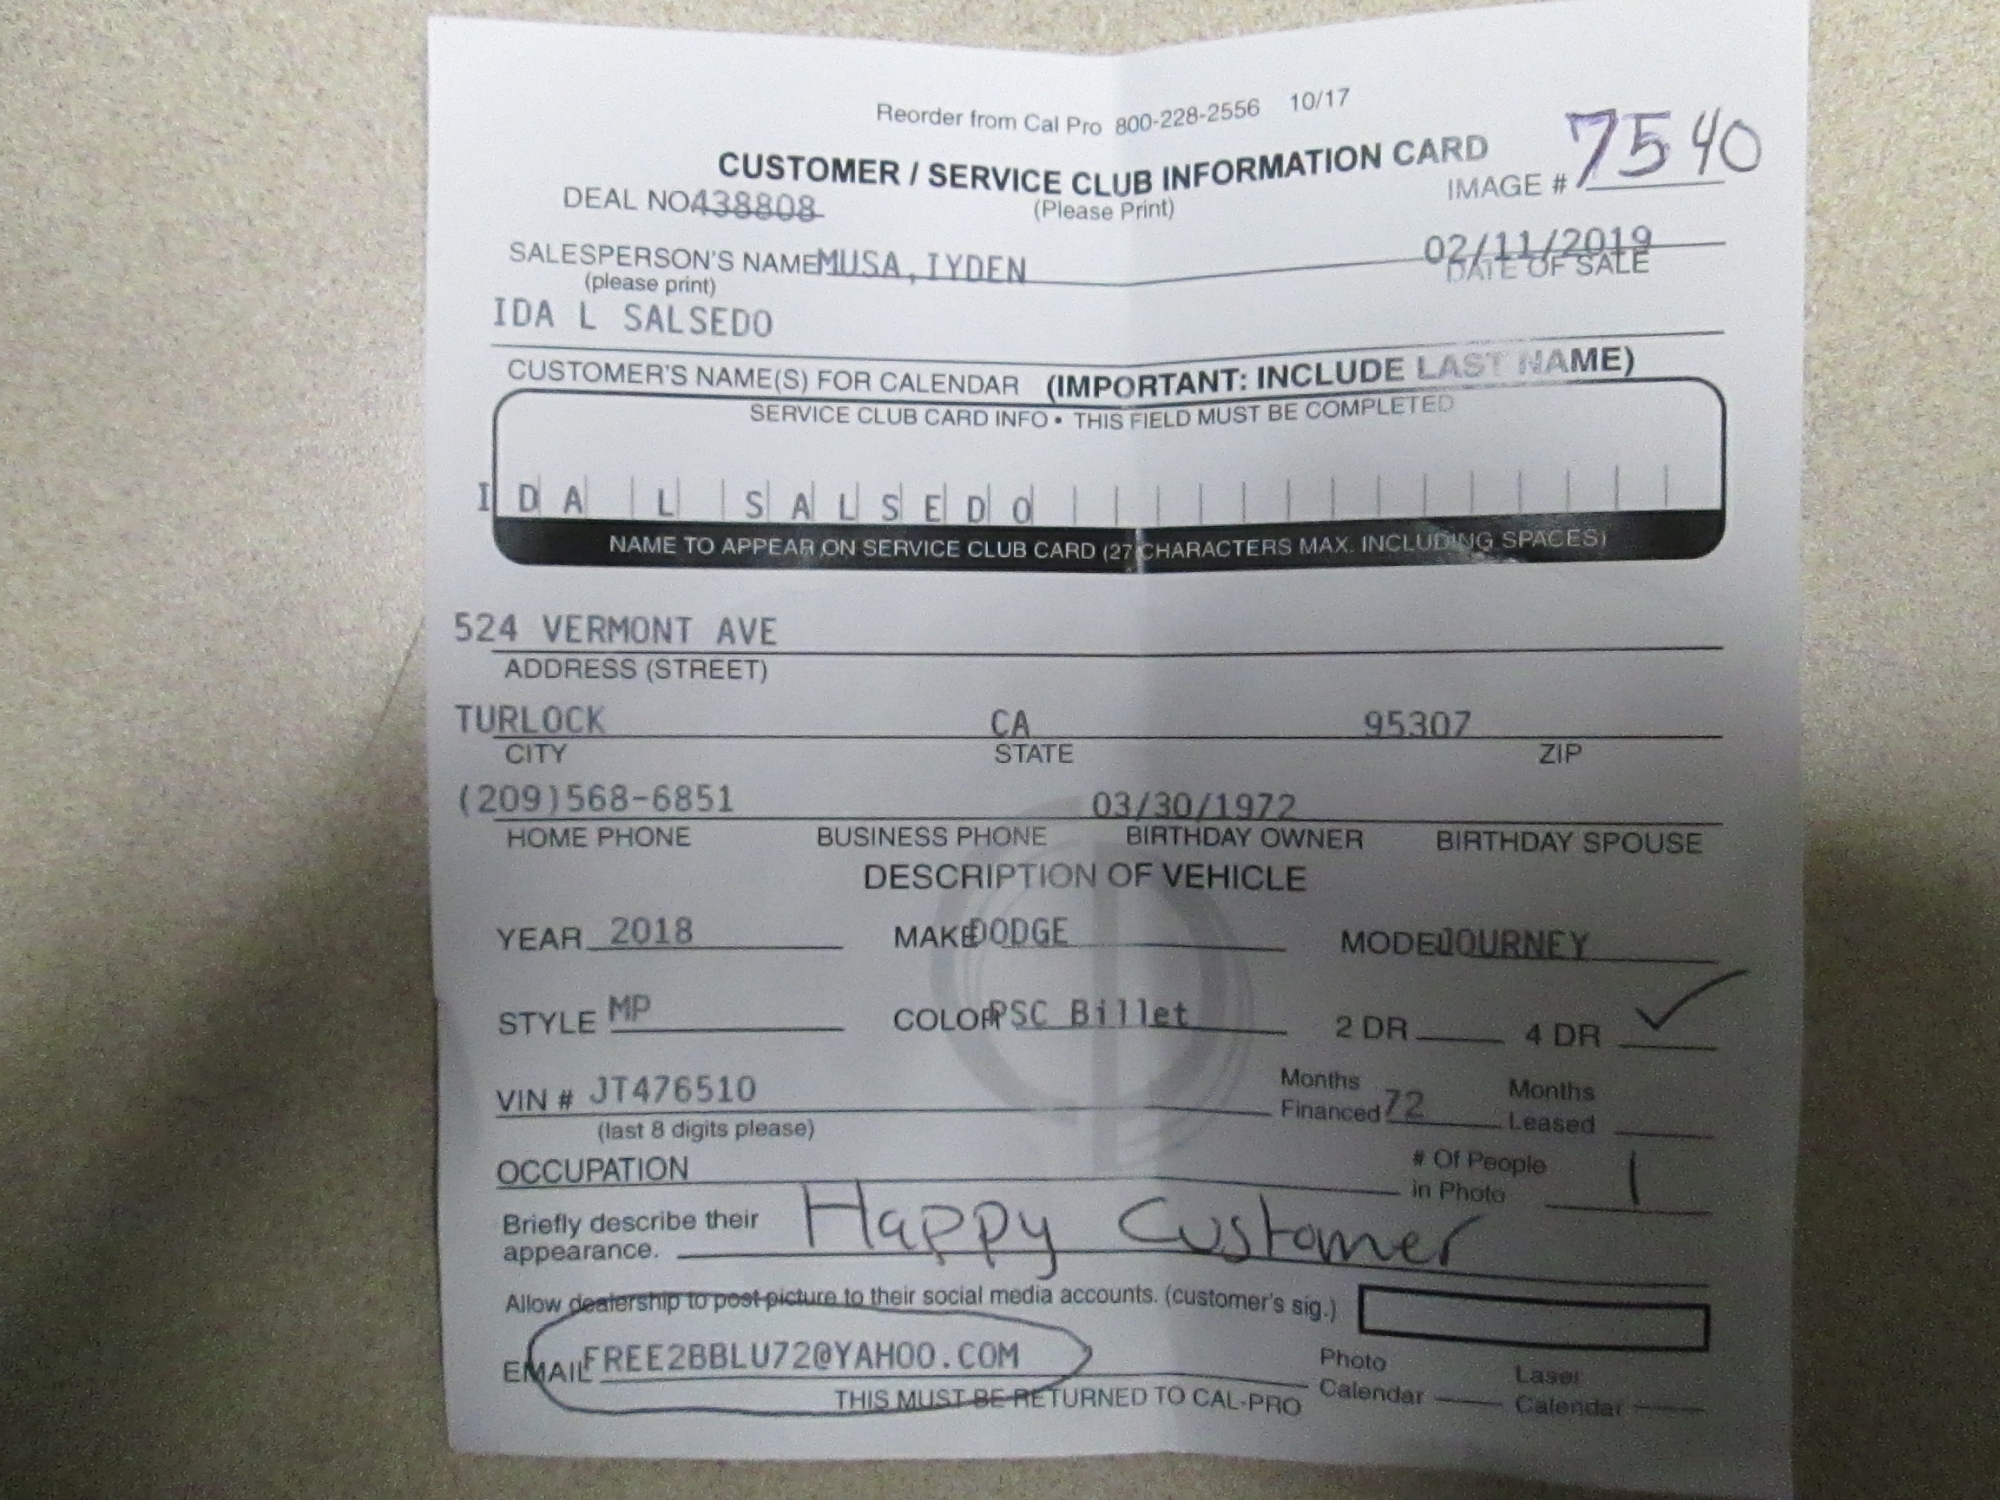 Reorder from Cal Pro 800-228-2556 10/17
CUSTOMER / SERVICE CLUB INFORMATION CARD
IMAGE # 7540
DEAL NO 438808
(Please Print)
SALESPERSON'S NAME MUSA, IYDEN
02/11/2019
(please print)
DATE OF SALE
IDA L SALSEDO
CUSTOMER'S NAME(S) FOR CALENDAR (IMPORTANT: INCLUDE LAST NAME)
SERVICE CLUB CARD INFO • THIS FIELD MUST BE COMPLETED
I D A L S A L S E D O
NAME TO APPEAR ON SERVICE CLUB CARD (27 CHARACTERS MAX. INCLUDING SPACES)
524 VERMONT AVE
ADDRESS (STREET)
TURLOCK CA 95307
CITY STATE ZIP
(209)568-6851 03/30/1972
HOME PHONE BUSINESS PHONE BIRTHDAY OWNER BIRTHDAY SPOUSE
DESCRIPTION OF VEHICLE
YEAR 2018 MAKE DODGE MODEL JOURNEY
STYLE MP COLOR PSC Billet 2 DR 4 DR ✓
VIN # JT476510 Months Financed 72 Months Leased
(last 8 digits please)
OCCUPATION # Of People in Photo 1
Briefly describe their appearance. Happy Customer
Allow dealership to post picture to their social media accounts. (customer's sig.)
EMAIL FREE2BBLU72@YAHOO.COM Photo Calendar Laser Calendar
THIS MUST BE RETURNED TO CAL-PRO